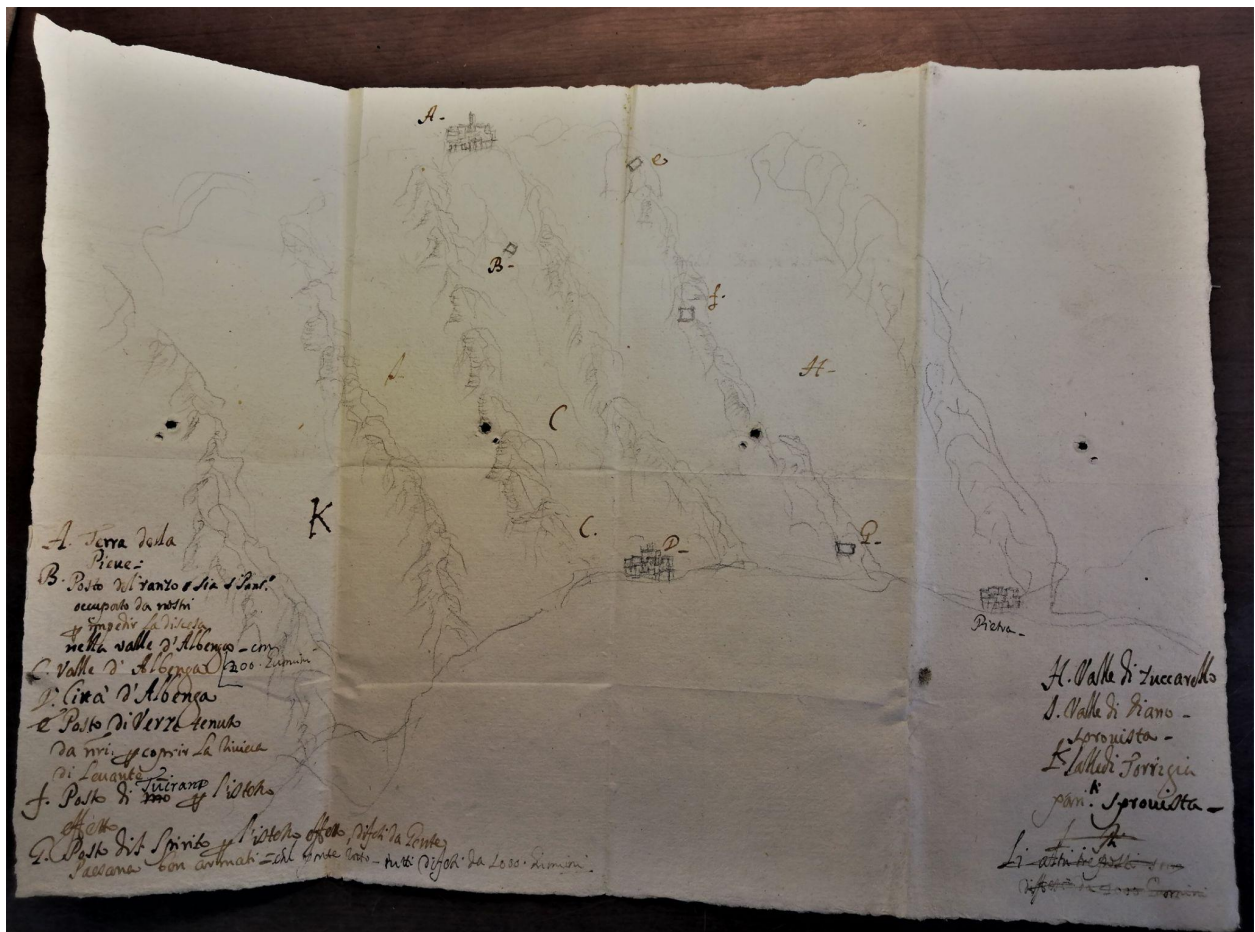 A-
e
B-
f.
H-
C
K
C.
D-
G-
Pietra-
A. Terra della
Pieve-
B. Posto del ranzo o sia
occupato da nostri
impedir la discesa
nella valle d'Albenga - con
C. Valle d'Albenga 200. huomini
D. Città d'Albenga
e Posto di Verzi tenuto
da nri. coprir la Riviera
di Levante
f. Posto di Tuirano l'istesso
effetto
G. Posto di S Spirito l'istesso effetto, difesi da Gente
Paesana ben armati = tutti difesi da 1000. huomini
H. Valle di Zuccarello
I. Valle di Diano -
sprovista -
K. Valle di
sprovista -
Li altri tre posti